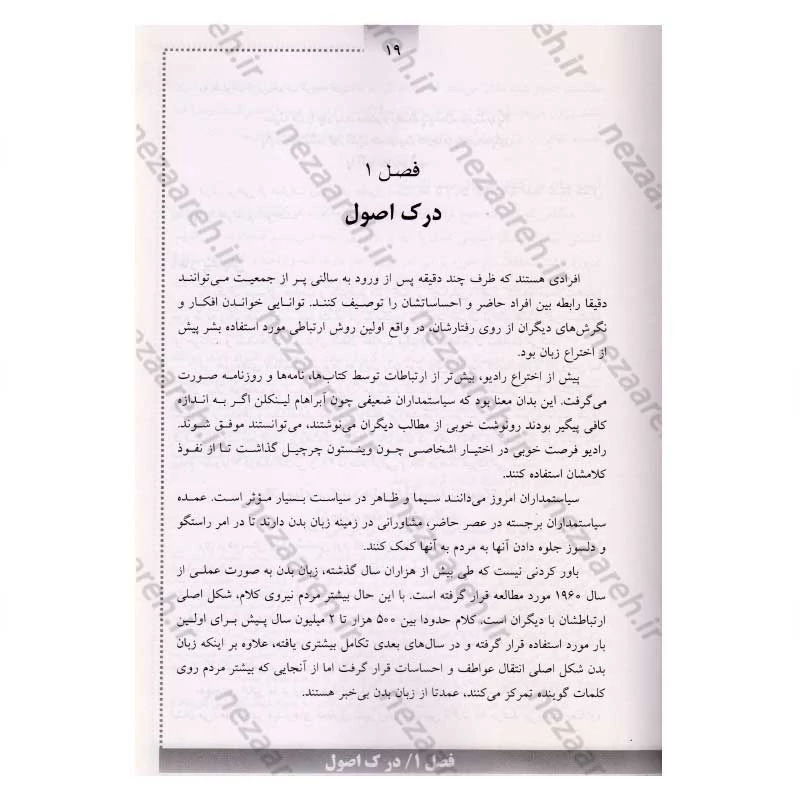 ۱۹
فصل ۱
درک اصول
افرادی هستند که ظرف چند دقیقه پس از ورود به سالنی پر از جمعیت می‌توانند
دقیقا رابطه بین افراد حاضر و احساساتشان را توصیف کنند. توانایی خواندن افکار و
نگرش‌های دیگران از روی رفتارشان، در واقع اولین روش ارتباطی مورد استفاده بشر پیش
از اختراع زبان بود.
پیش از اختراع رادیو، بیش‌تر از ارتباطات توسط کتاب‌ها، نامه‌ها و روزنامه صورت
می‌گرفت. این بدان معنا بود که سیاستمداران ضعیفی چون آبراهام لینکلن اگر به اندازه
کافی پیگیر بودند رونوشت خوبی از مطالب دیگران می‌نوشتند، می‌توانستند موفق شوند.
رادیو فرصت خوبی در اختیار اشخاصی چون وینستون چرچیل گذاشت تا از نفوذ
کلامشان استفاده کنند.
سیاستمداران امروز می‌دانند سیما و ظاهر در سیاست بسیار مؤثر است. عمده
سیاستمداران برجسته در عصر حاضر، مشاورانی در زمینه زبان بدن دارند تا در امر راستگو
و دلسوز جلوه دادن آنها به مردم به آنها کمک کنند.
باور کردنی نیست که طی بیش از هزاران سال گذشته، زبان بدن به صورت عملی از
سال ۱۹۶۰ مورد مطالعه قرار گرفته است. با این حال بیشتر مردم نیروی کلام، شکل اصلی
ارتباطشان با دیگران است. کلام حدودا بین ۵۰۰ هزار تا ۲ میلیون سال پیش برای اولین
بار مورد استفاده قرار گرفته و در سال‌های بعدی تکامل بیشتری یافته، علاوه بر اینکه زبان
بدن شکل اصلی انتقال عواطف و احساسات قرار گرفت اما از آنجایی که بیشتر مردم روی
کلمات گوینده تمرکز می‌کنند، عمدتا از زبان بدن بی‌خبر هستند.
فصل ۱/ درک اصول
nezaareh.ir